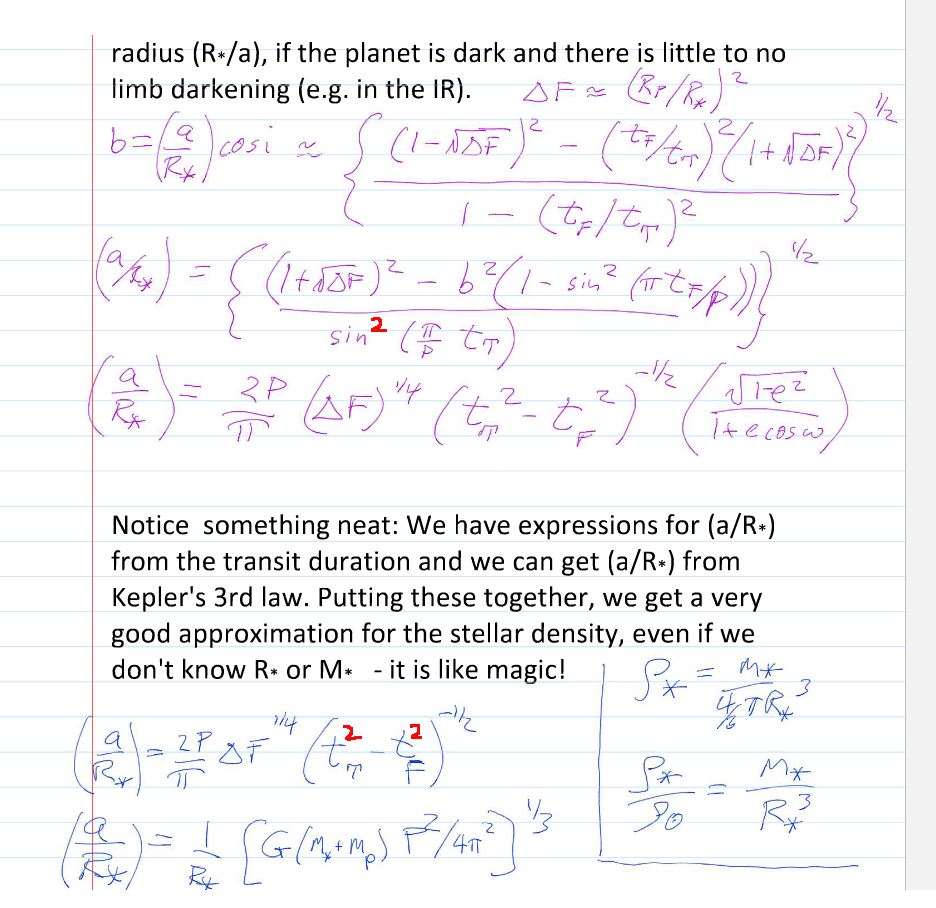 radius (R*/a), if the planet is dark and there is little to no
limb darkening (e.g. in the IR). ΔF ≈ (Rp/R*)^2
b = (a/R*) cos i ≈ { ((1-√ΔF)^2 - (t_F/t_T)^2 (1+√ΔF)^2) / (1 - (t_F/t_T)^2) }^1/2
(a/R*) = { ((1+√ΔF)^2 - b^2(1 - sin^2(π t_F/P))) / sin^2(π/P t_T) }^1/2
(a/R*) = 2P/π (ΔF)^1/4 (t_T^2 - t_F^2)^-1/2 (√1-e^2 / 1+e cos ω)
Notice something neat: We have expressions for (a/R*)
from the transit duration and we can get (a/R*) from
Kepler's 3rd law. Putting these together, we get a very
good approximation for the stellar density, even if we
don't know R* or M* - it is like magic!
ρ* = M* / (4/3 π R*^3)
(a/R*) = 2P/π ΔF^1/4 (t_T^2 - t_F^2)^-1/2
ρ*/ρ0 = M*/R*^3
(a/R*) = 1/R* [G(M*+Mp) P^2/4π^2]^1/3